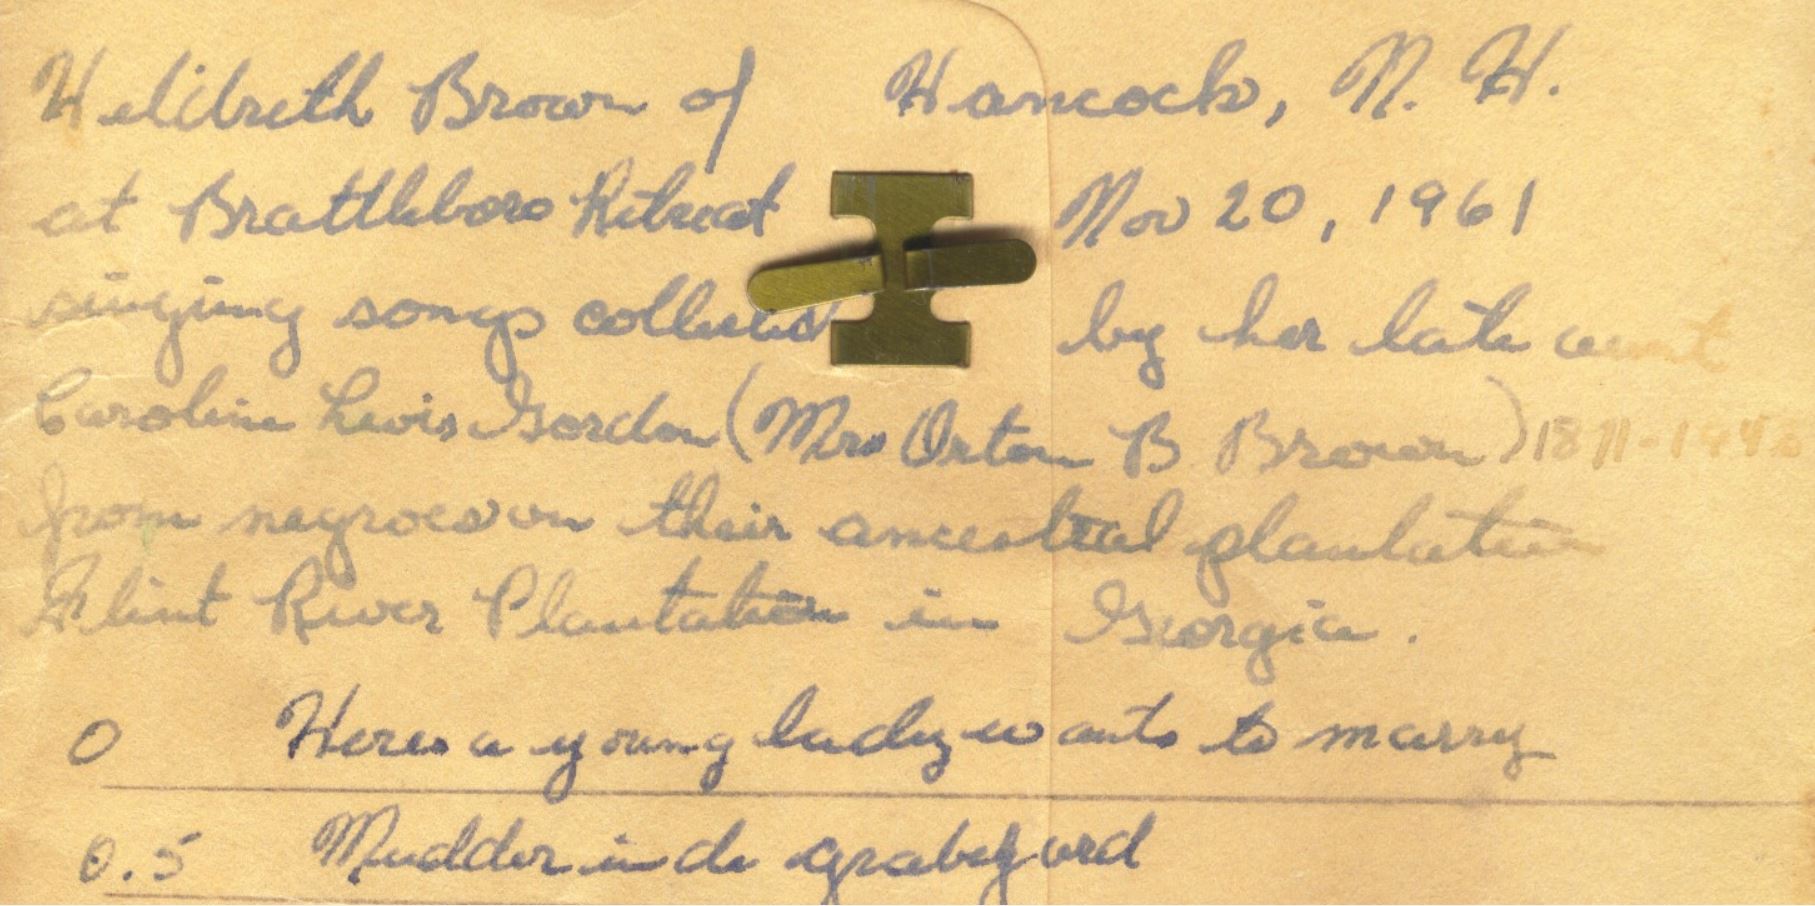 Brown of Hancock, N. H.
at Brattleboro Retreat Nov 20, 1961
singing songs collected by her late aunt
Caroline Lewis Gordon (Mrs Orton B Brown)
from negroes on their ancestral plantation
Flint River Plantation in Georgia.
0 Heres a young lady wants to marry
0.5 Mudder in de grabeyard